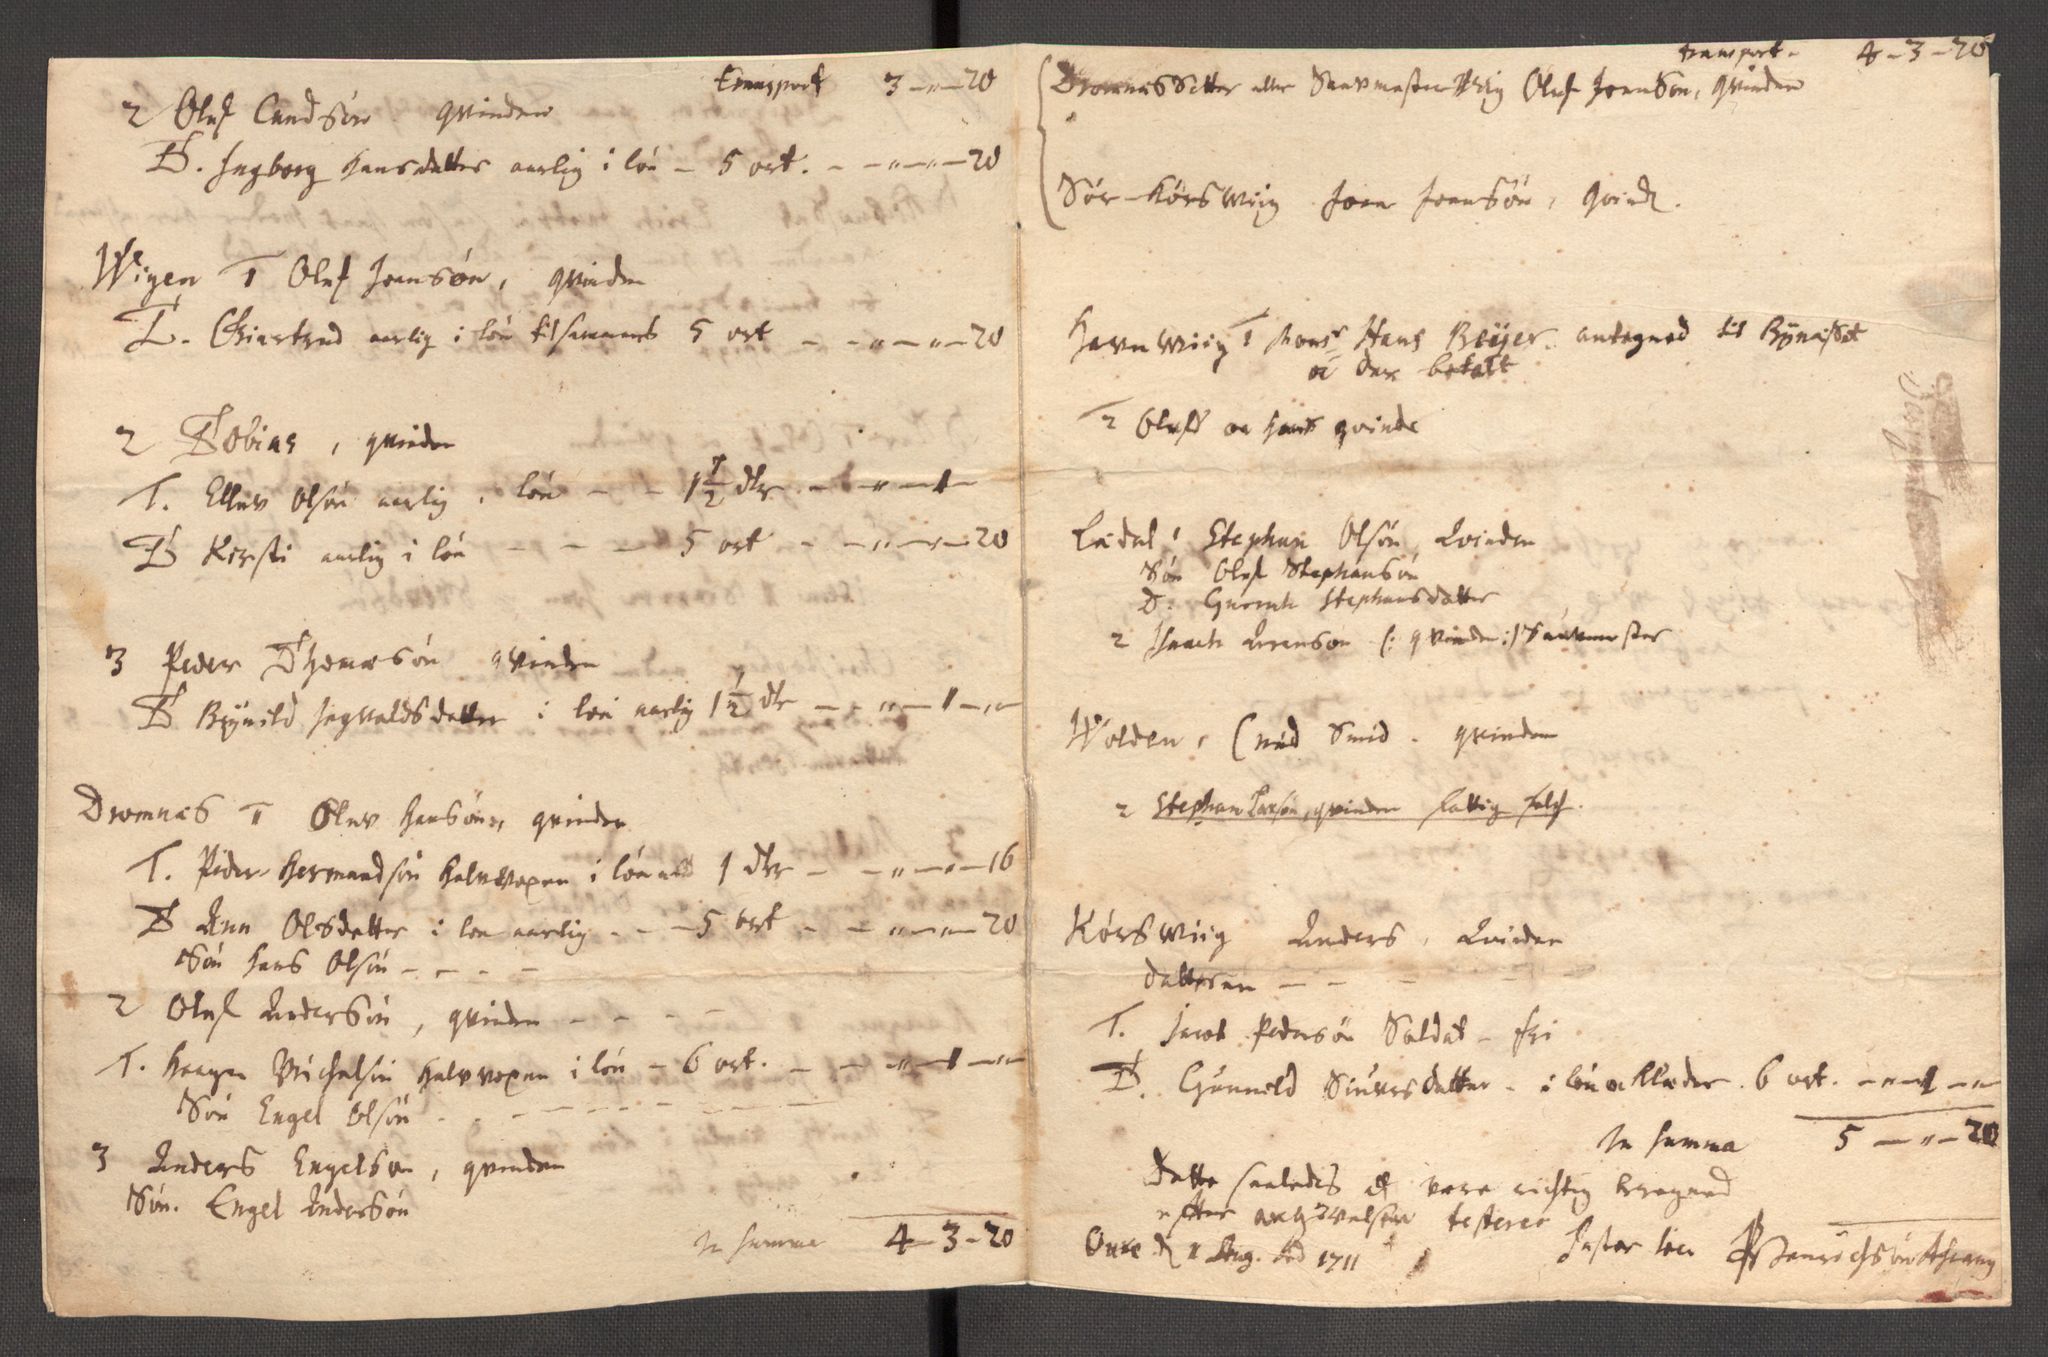 Transport 3 – „ – 20
2 Oluf Cnudsön qvinden
D. Ingborg Hansdatter aarlig i lön – 5 ort. – – „ – „ – 20
Wigen 1 Oluf Joensön, qvinden
D. Giertrud aarlig i lön tilsammens 5 ort – – „ – „ – 20
2 Tobias, qvinden
T. Elluv Olsön aarlig i lön – – 1½ dlr – – „ – 1 –
D Kirsti aarlig i lön – – – 5 ort – – „ – „ – 20
3 Peder Thomæsön qvinden
D Brÿnild Sigvaldsdatter i lön aarlig 1½ dlr – – „ – 1 – „
Dromnæs 1 Oluv Hansön, qvinden
T. Peder Hermandsön halvvoxen i lön 1 dlr – – „ – „ – 16
D Ann Olsdatter i lön aarlig – – 5 ort – – „ – „ – 20
Sön Hans Olsön – – – –
2 Oluf Andersön, qvinden – – – –
T. Haagen Michelsön halvvoxen i lön – 6 ort. – – „ – 1 – „
Sön Engel Olsön – – – – – –
3 Anders Engelsön, qvinden
Sön. Engel Andersön
In summa 4 – 3 – 20
transport – 4 – 3 – 20
Dromnæs Setter eller Saavmester Wiig Oluf Joensön, qvinden
Sör-Körswiig Joen Joensön, qvind.
Havnwiig 1 Monsr Hans Beÿer antegned til Bÿnæsset
oc der betalt
2 Oluf oc hans qvinde
Lædal 1 Stephen Olsön, Qvinden
Sön Oluf Stephensön
D. Stephensdatter
2 Isach Arensön (: qvinden :) Saavmester
Wolden, Cnud Smid. qvinden
2 Stephen Larsön, qvinden fattig folch.
Körswiig Anders, Qvinden
datteren – – – – –
T. Jacob Pedersön Soldat – fri
D. Gunnild Siursdatter – i lön oc klæder. 6 ort. – „ – 1 – „
In summa 5 – „ – 20
Dette saaledes at være richtig beregned
efter angivelsen testerer
Onxe d 1 Aug. Ao 1711